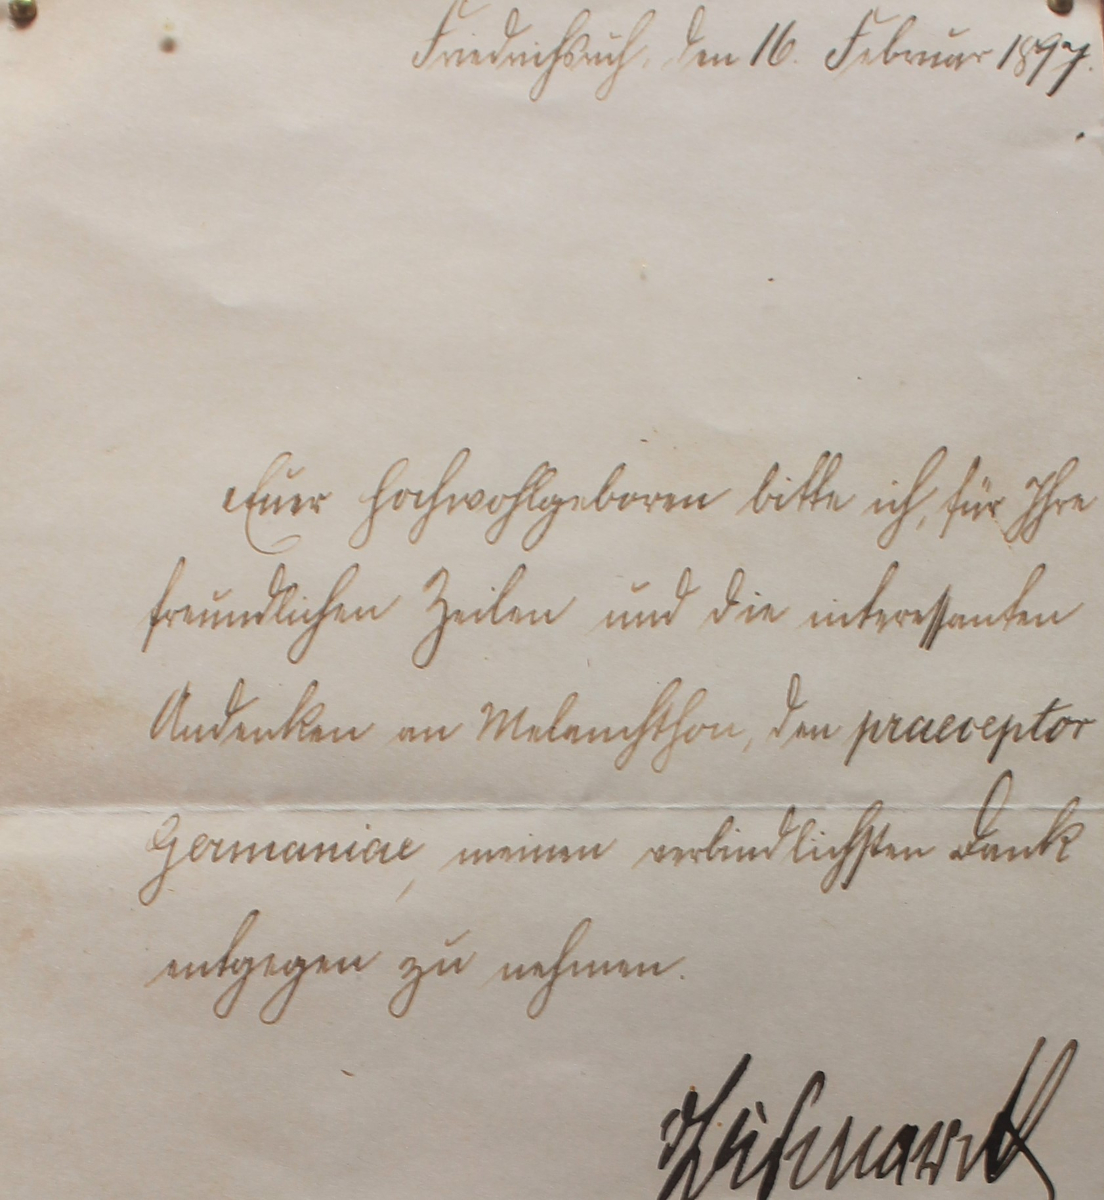 Friedrichsruh, den 16. Februar 1897.
Euer Hochwohlgeboren bitte ich, für Ihre
freundlichen Zeilen und die interessanten
Andenken an Melanchthon, den praeceptor
Germaniae, meinen verbindlichsten Dank
entgegen zu nehmen.
vBismarck